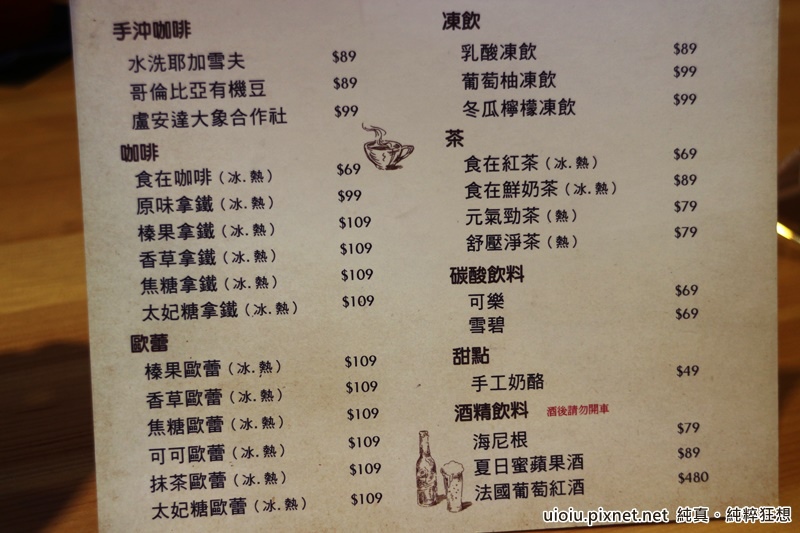 手沖咖啡
水洗耶加雪夫 $89
哥倫比亞有機豆 $89
盧安達大象合作社 $99
咖啡
食在咖啡(冰.熱) $69
原味拿鐵(冰.熱) $99
榛果拿鐵(冰.熱) $109
香草拿鐵(冰.熱) $109
焦糖拿鐵(冰.熱) $109
太妃糖拿鐵(冰.熱) $109
歐蕾
榛果歐蕾(冰.熱) $109
香草歐蕾(冰.熱) $109
焦糖歐蕾(冰.熱) $109
可可歐蕾(冰.熱) $109
抹茶歐蕾(冰.熱) $109
太妃糖歐蕾(冰.熱) $109
凍飲
乳酸凍飲 $89
葡萄柚凍飲 $99
冬瓜檸檬凍飲 $99
茶
食在紅茶(冰.熱) $69
食在鮮奶茶(冰.熱) $89
元氣勁茶(熱) $79
舒壓淨茶(熱) $79
碳酸飲料
可樂 $69
雪碧 $69
甜點
手工奶酪 $49
酒精飲料 酒後請勿開車
海尼根 $79
夏日蜜蘋果酒 $89
法國葡萄紅酒 $480
uioiu.pixnet.net 純真·純粹狂想